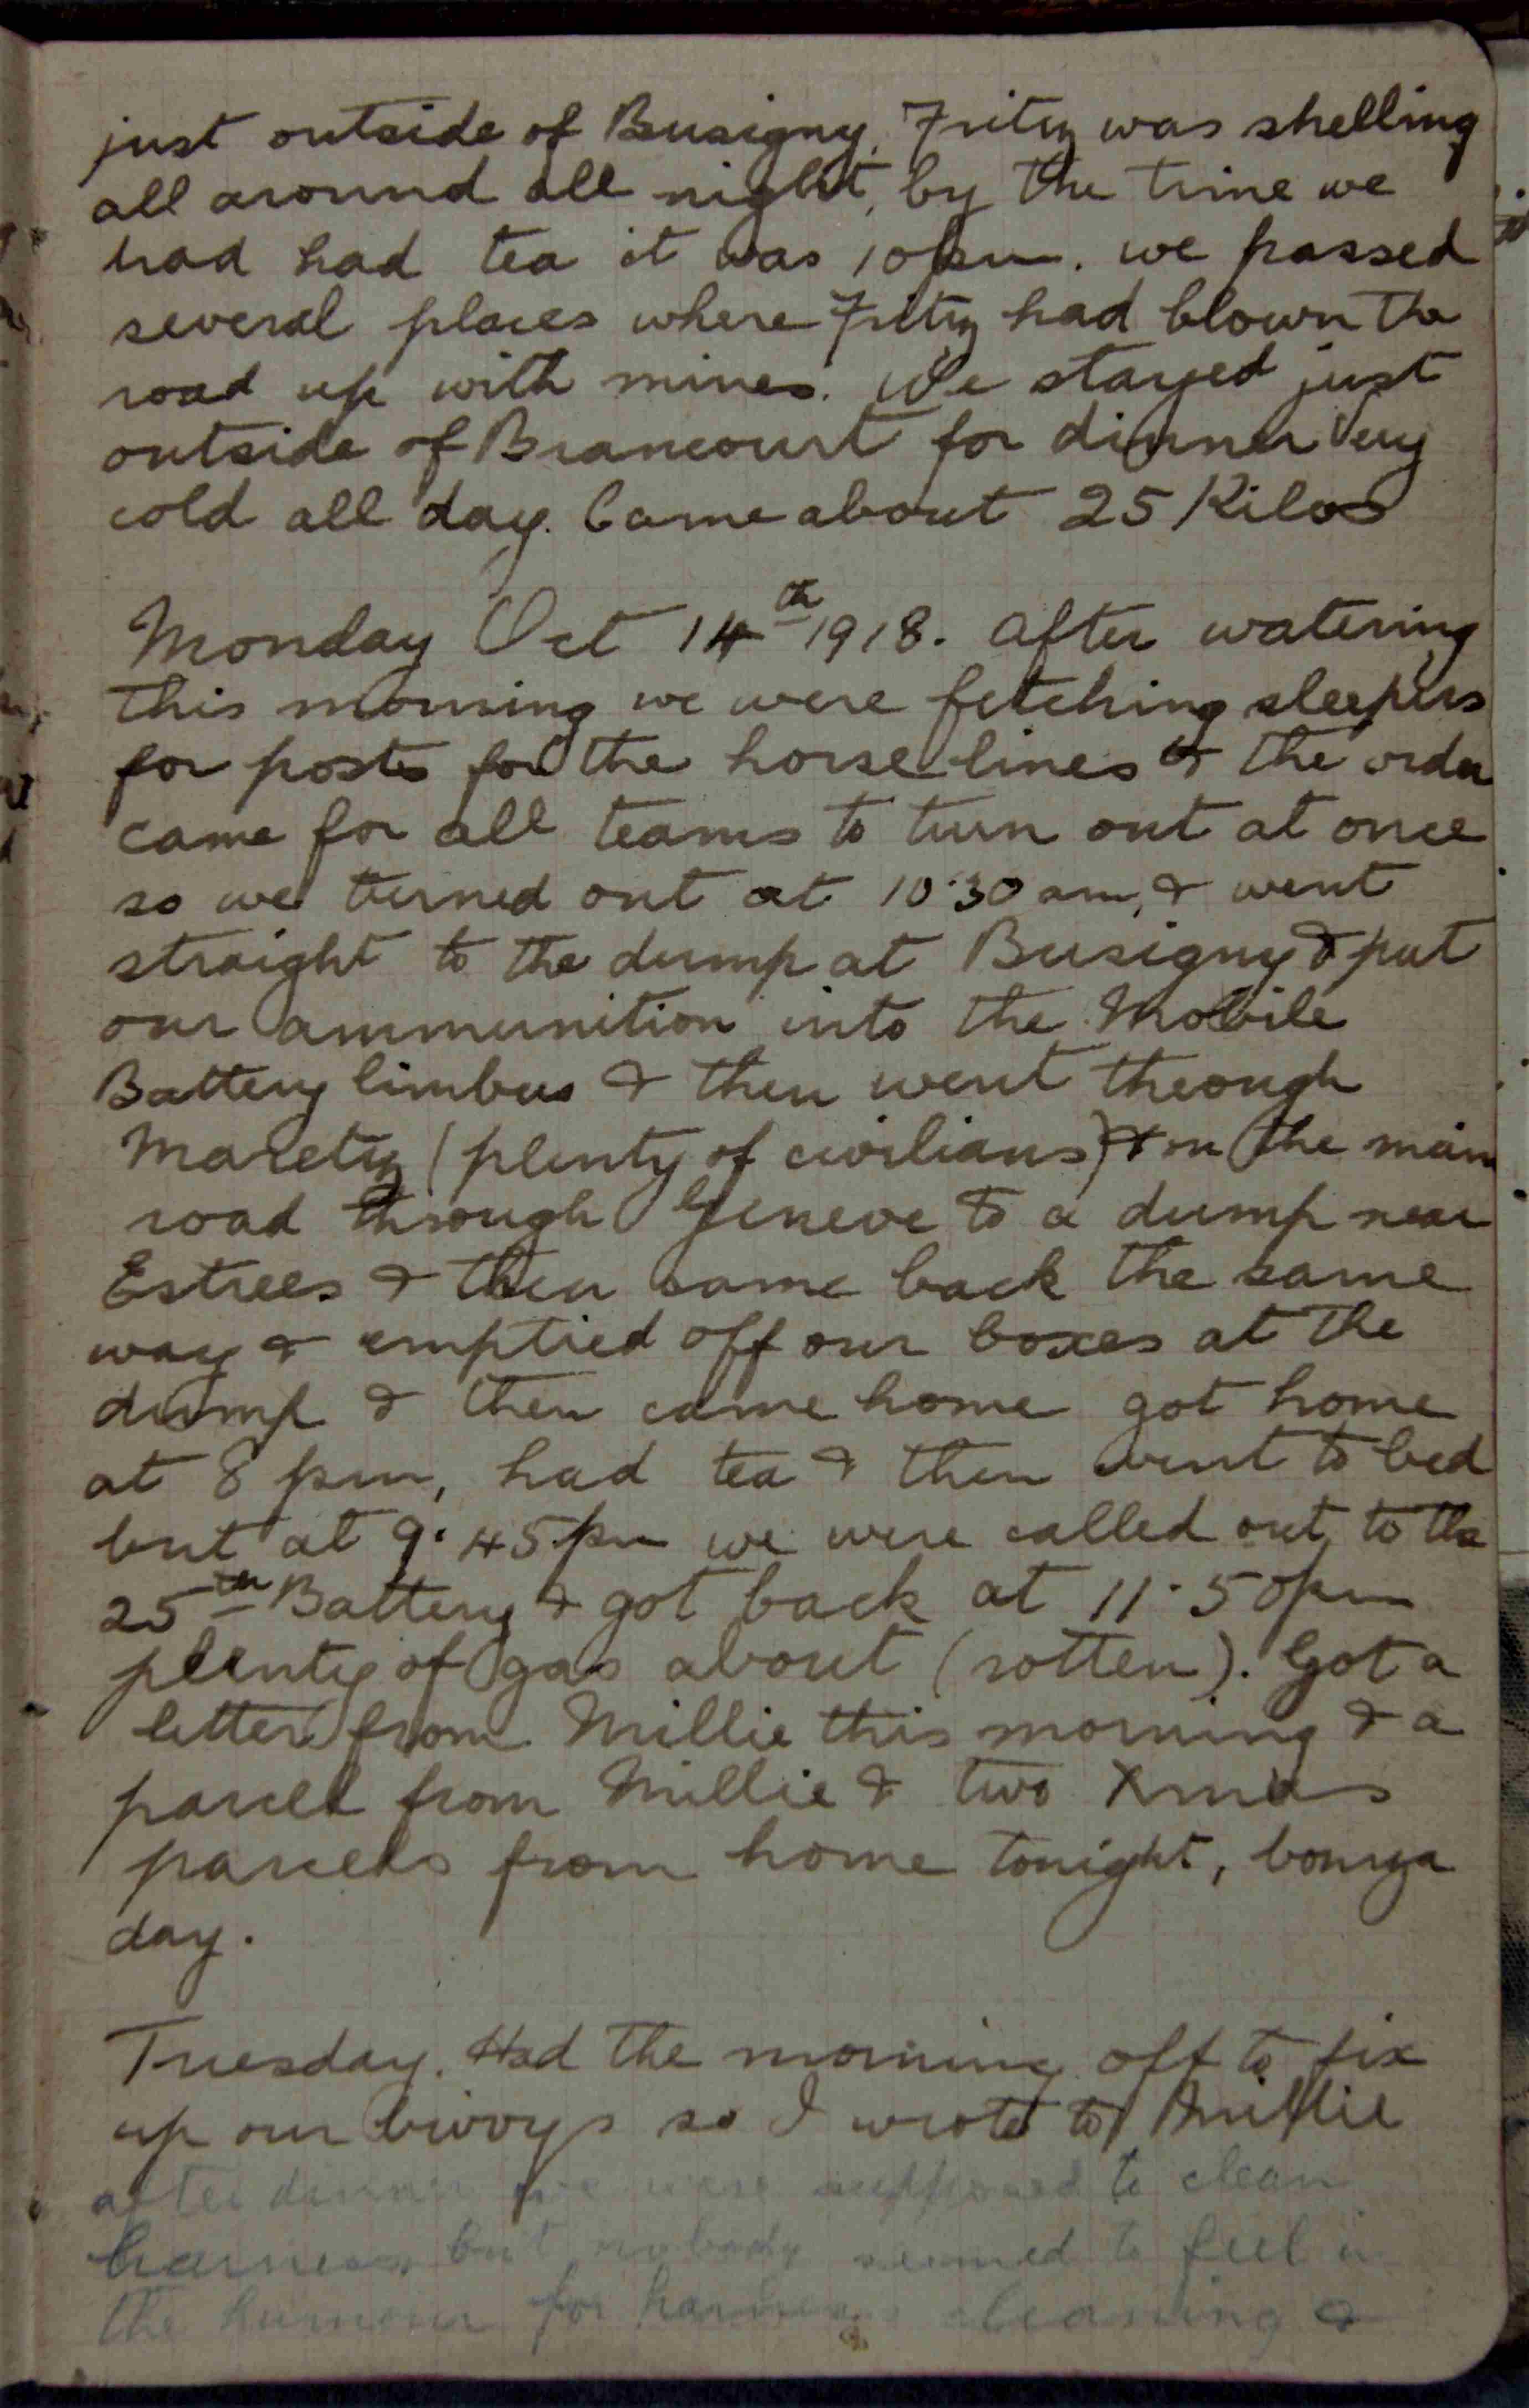 just outside of Busigny, Fritz was shelling
all around all night, by the time we
had had tea it was 10pm. we passed
several places where Fritz had blown the
road up with mines. We stayed just
outside of Brancourt for dinner Very
cold all day. Came about 25 Kilos
Monday Oct 14th 1918. After watering
this morning we were fetching sleepers
for posts for the horse lines & the order
came for all teams to turn out at once
so we turned out at 10.30 am, & went
straight to the dump at Busigny & put
our ammunition into the Mobile
Battery limbers & then went through
Maretz (plenty of civilians) & on the main
road through Geneve to a dump near
Estrees & then came back the same
way & emptied off our boxes at the
dump & then came home got home
at 8 pm, had tea & then went to bed
but at 9.45 pm we were called out, to the
25th Battery & got back at 11.50pm
plenty of gas about (rotten). Got a
letter from Millie this morning & a
parcel from Millie & two Xmas
parcels from home tonight, bonza
day.
Tuesday. Had the morning off to fix
up our bivvys so I wrote to Millie
after dinner we were supposed to clean
harness but nobody seemed to feel in
the humour for harness cleaning &